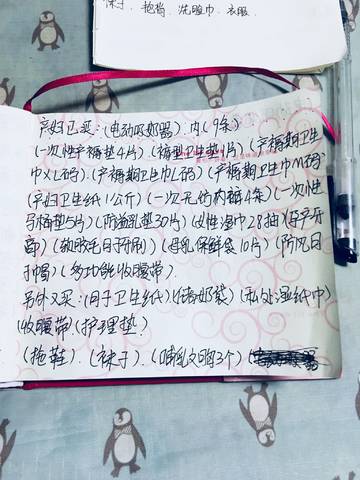 袜子、抱背、洗脸巾、衣服、
产妇已买：(电动吸奶器)、内(9条)
(一次性产褥垫4片)、(裤型卫生垫1片)(产褥期卫生
巾XL码)、(产褥期卫生巾L码)(产褥期卫生巾M码)
(产妇卫生纸1公斤)(一次无纺内裤4条)(一次性
马桶垫5片)(防溢乳垫30片)(女性湿巾28抽)
(软胶毛月子牙刷)(母乳保鲜袋10片)(防风月
子帽)(多功能收腹带)
另外又买：(月子卫生纸)(储奶袋)(私处湿纸巾)
(收腹带)(护理垫)
(拖鞋)、(袜子)、(哺乳文胸3个)